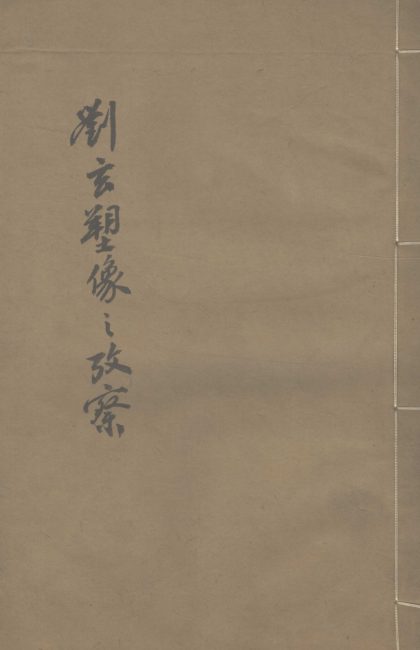 劉玄塑像之攷察